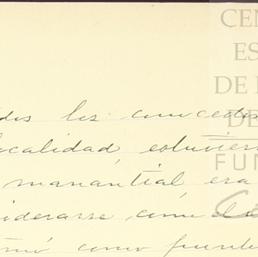 CEN
ES
DE
DE
FUN
los conced
localidad, estuvier
manantial, era
iderarse, como
como fuente